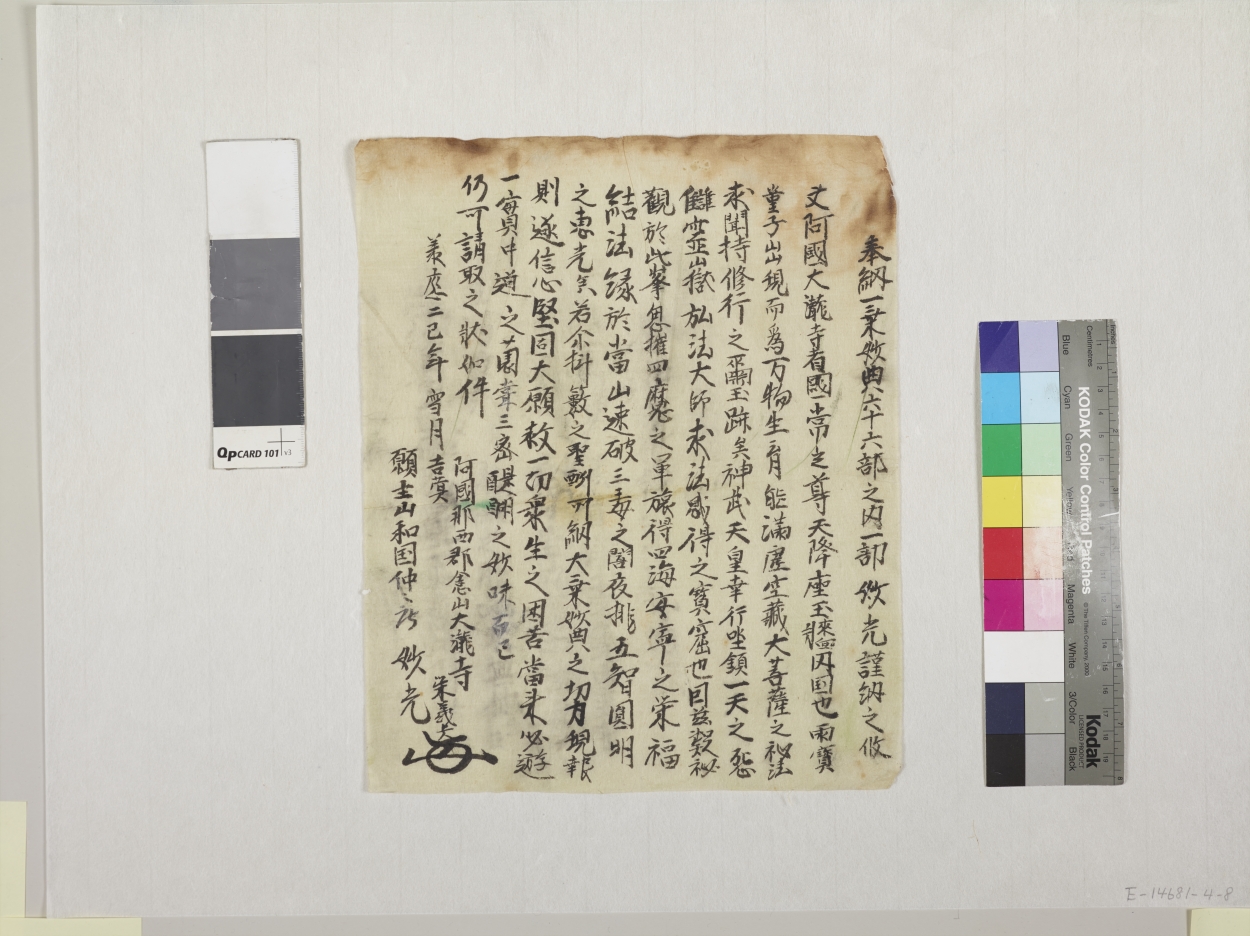 奉納一乗妙典六十六部之内一部 妙光謹納之攸
丈阿國大瀧寺者國常立尊天降座玉牆内国也雨寳
童子出現而為万物生育能満虚空蔵大菩薩之秘法
求聞持修行之爾玉跡矣神武天皇幸行坐鎮一天之
讎霊嶽弘法大師求法感得之寳窟也因玆凝秘
觀於此峯忽摧四魔之軍旅得四海安寧之栄福
結法縁於當山速破三毒之闇夜挑五智圓明
之恵光矣若尓抖籔之聖酬可納大乗妙典之切力現報
則遂信心堅固大願救一切衆生之困苦當来必遊
一實中道之薗甞三密醍醐之妙味而已
仍可請取之状如件
阿國那西郡舎山大瀧寺
二己年雪月吉蓂
栄義
願主山和国仲 妙光
QPCARD 101 v3
KODAK Color Control Patches
© The Tiffen Company, 2000
Kodak
LICENSED PRODUCT
Inches
Centimetres
Blue
Cyan
Green
Yellow
Red
Magenta
White
3/Color
Black
E-14681-4-8